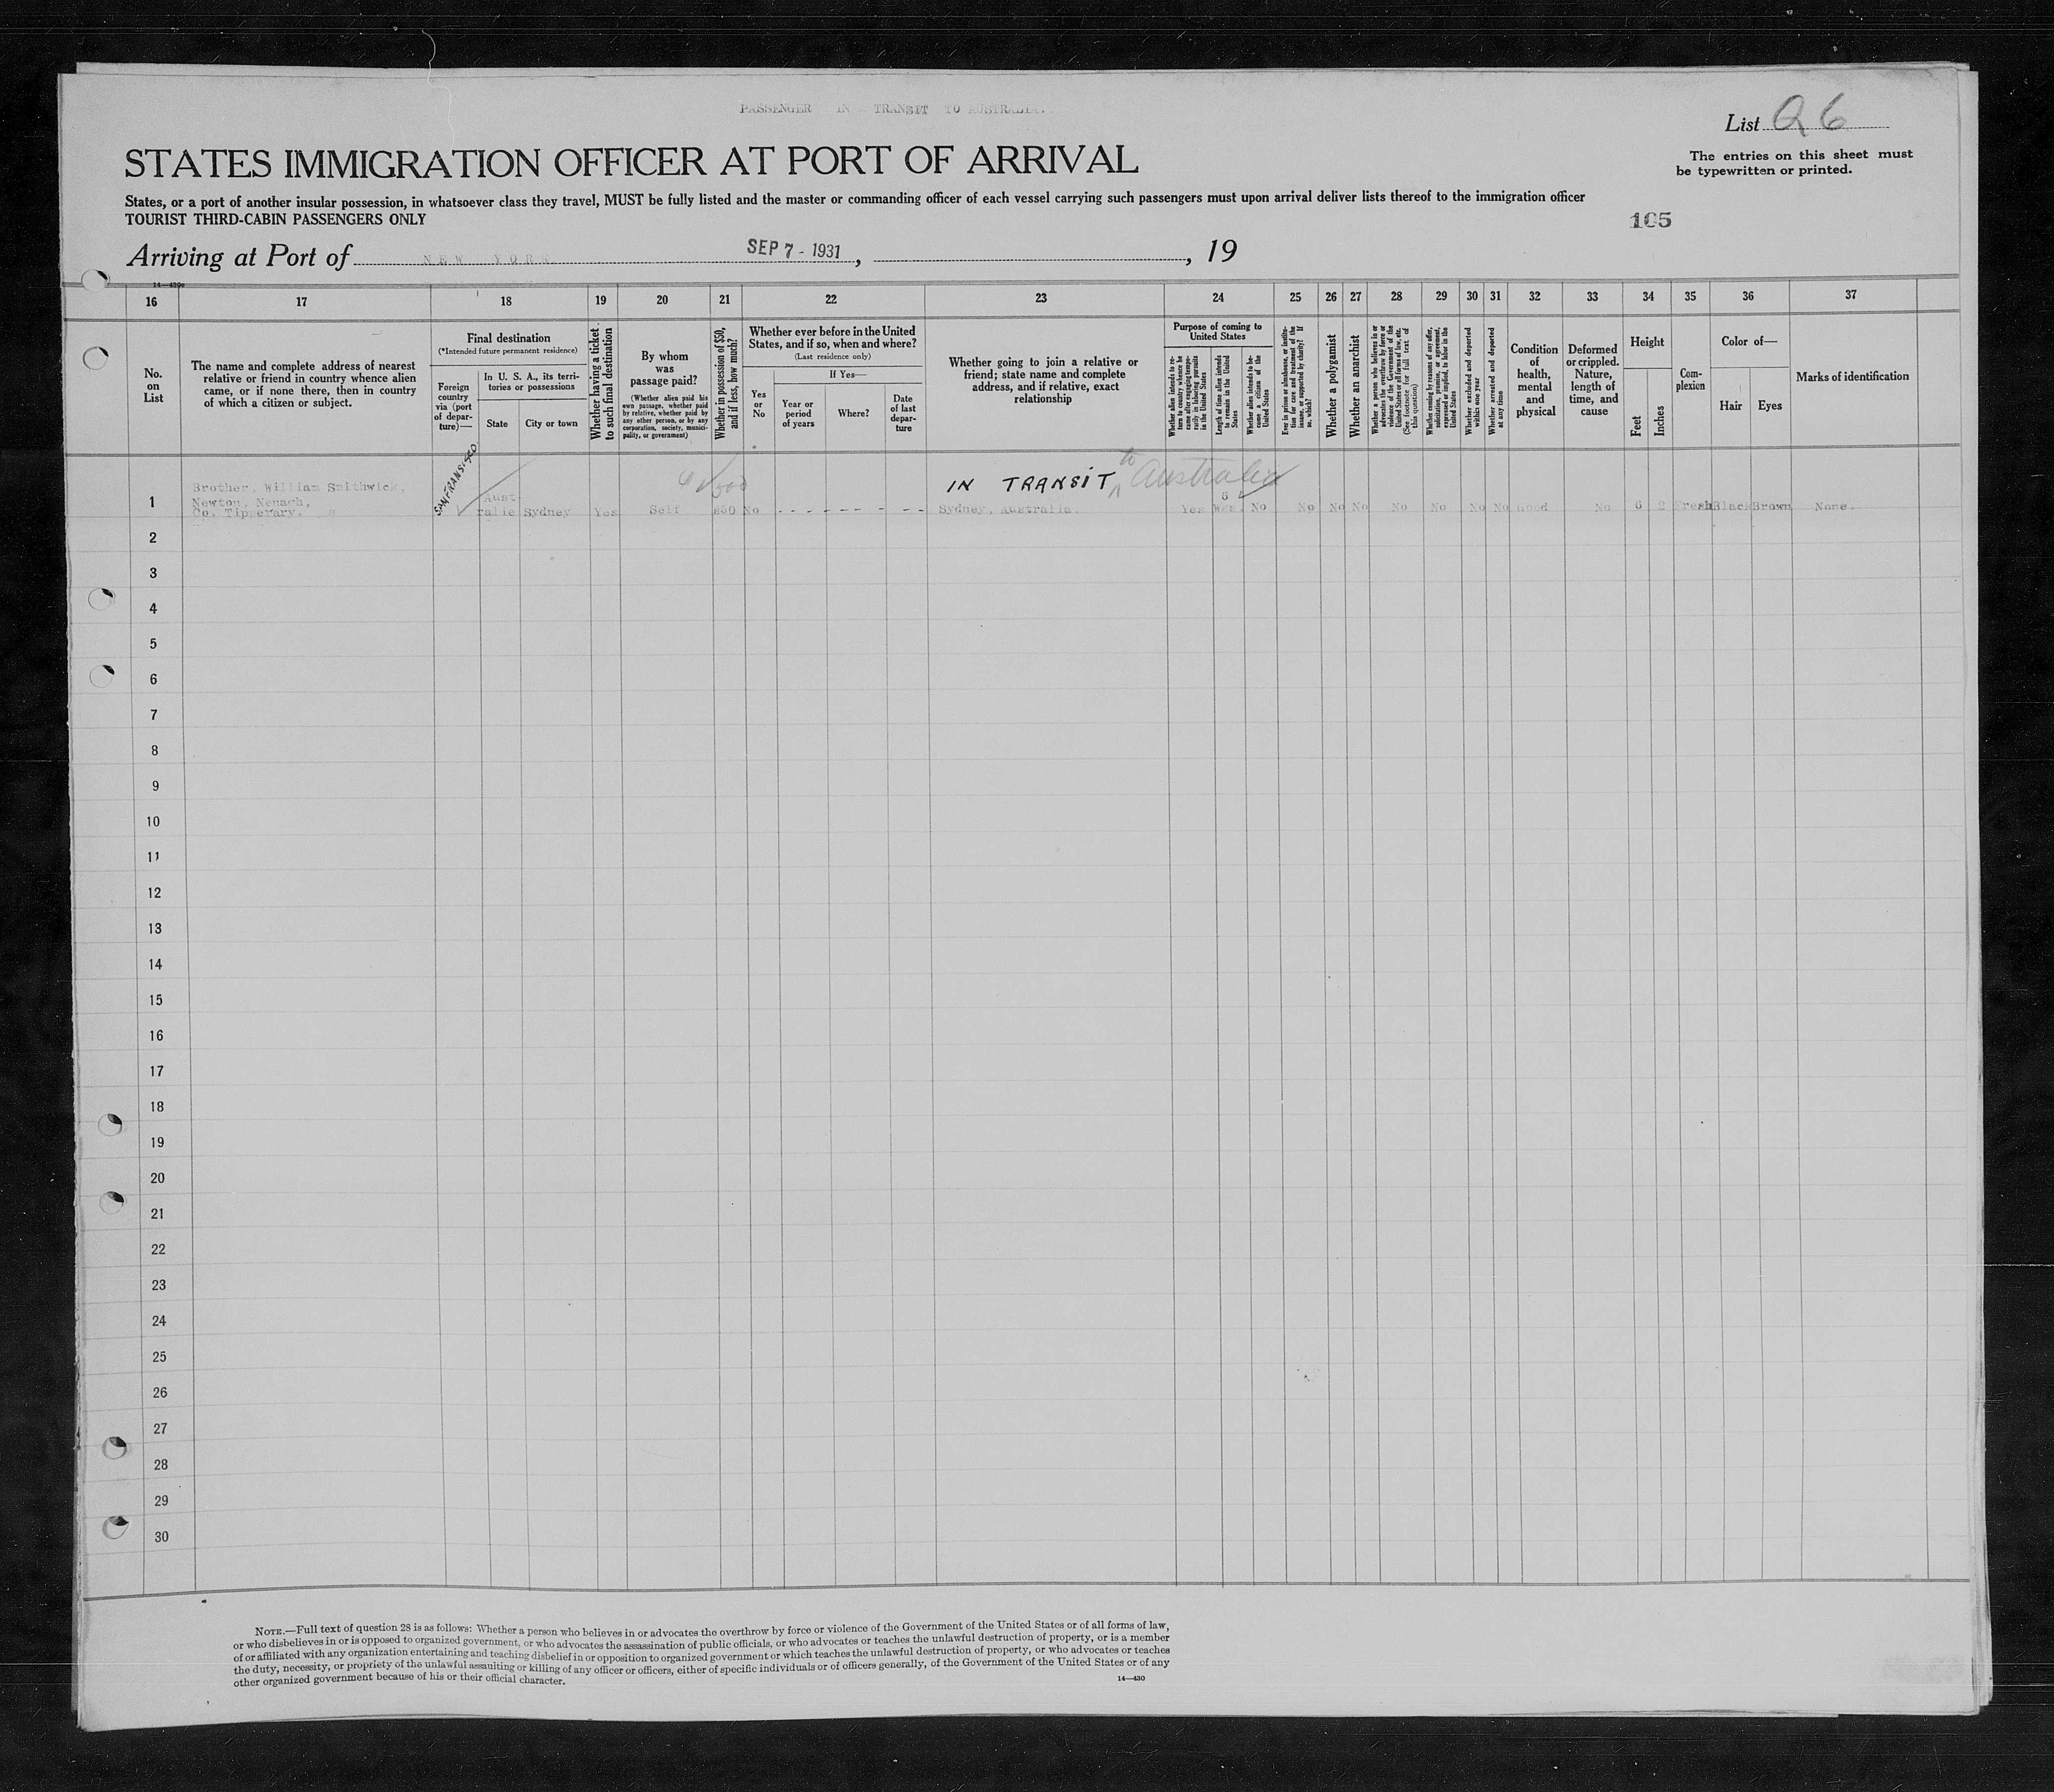 PASSENGER IN TRANSIT TO AUSTRALIA.
List Q 6
STATES IMMIGRATION OFFICER AT PORT OF ARRIVAL
The entries on this sheet must
be typewritten or printed.
States, or a port of another insular possession, in whatsoever class they travel, MUST be fully listed and the master or commanding officer of each vessel carrying such passengers must upon arrival deliver lists thereof to the immigration officer
TOURIST THIRD-CABIN PASSENGERS ONLY
105
Arriving at Port of NEW YORK SEP 7 - 1931, , 19
16 17 18 19 20 21 22 23 24 25 26 27 28 29 30 31 32 33 34 35 36 37
No.
on
List
The name and complete address of nearest
relative or friend in country whence alien
came, or if none there, then in country
of which a citizen or subject.
Final destination
(*Intended future permanent residence)
Foreign
country
via (port
of depar-
ture)—
In U. S. A., its terri-
tories or possessions
State
City or town
Whether having a ticket
to such final destination
By whom
was
passage paid?
(Whether alien paid his
own passage, whether paid
by relative, whether paid by
any other person, or by any
corporation, society, munici-
pality, or government)
Whether in possession of $50,
and if less, how much?
Whether ever before in the United
States, and if so, when and where?
(Last residence only)
Yes
or
No
If Yes—
Year or
period
of years
Where?
Date
of last
depar-
ture
Whether going to join a relative or
friend; state name and complete
address, and if relative, exact
relationship
Purpose of coming to
United States
Whether alien intends to re-
turn to country whence he
came after engaging tempo-
rarily in laboring pursuits
in the United States
Length of time alien intends
to remain in the United
States
Whether alien intends to be-
come a citizen of the
United States
Ever in prison or almshouse, or institu-
tion for care and treatment of the
insane, or supported by charity? If
so, which?
Whether a polygamist
Whether an anarchist
Whether a person who believes in or
advocates the overthrow by force or
violence of the Government of the
United States or all forms of law, etc.
(See footnote for full text of
this question)
Whether coming by reasons of any offer,
solicitation, promise, or agreement,
expressed or implied, to labor in the
United States
Whether excluded and deported
within one year
Whether arrested and deported
at any time
Condition
of
health,
mental
and
physical
Deformed
or crippled.
Nature,
length of
time, and
cause
Height
Feet
Inches
Com-
plexion
Color of—
Hair
Eyes
Marks of identification
SANFRANSISCO
IN TRANSIT to Australia
Brother, William Smithwick,
Newton, Nenagh,
Co. Tipperary.
1 Aust-
ralia Sydney Yes Self $50 No - - - - - - - - Sydney, Australia. Yes No No No No No No No No Good No 6 2 Fresh Black Brown None.
2
3
4
5
6
7
8
9
10
11
12
13
14
15
16
17
18
19
20
21
22
23
24
25
26
27
28
29
30
NOTE.—Full text of question 28 is as follows: Whether a person who believes in or advocates the overthrow by force or violence of the Government of the United States or of all forms of law,
or who disbelieves in or is opposed to organized government, or who advocates the assassination of public officials, or who advocates or teaches the unlawful destruction of property, or is a member
of or affiliated with any organization entertaining and teaching disbelief in or opposition to organized government or which teaches the unlawful destruction of property, or who advocates or teaches
the duty, necessity, or propriety of the unlawful assaulting or killing of any officer or officers, either of specific individuals or of officers generally, of the Government of the United States or of any
other organized government because of his or their official character.
14—430